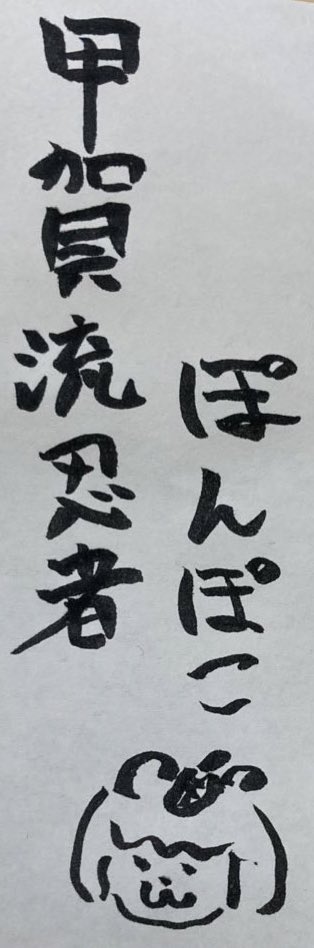 甲賀流忍者
ぽんぽこ